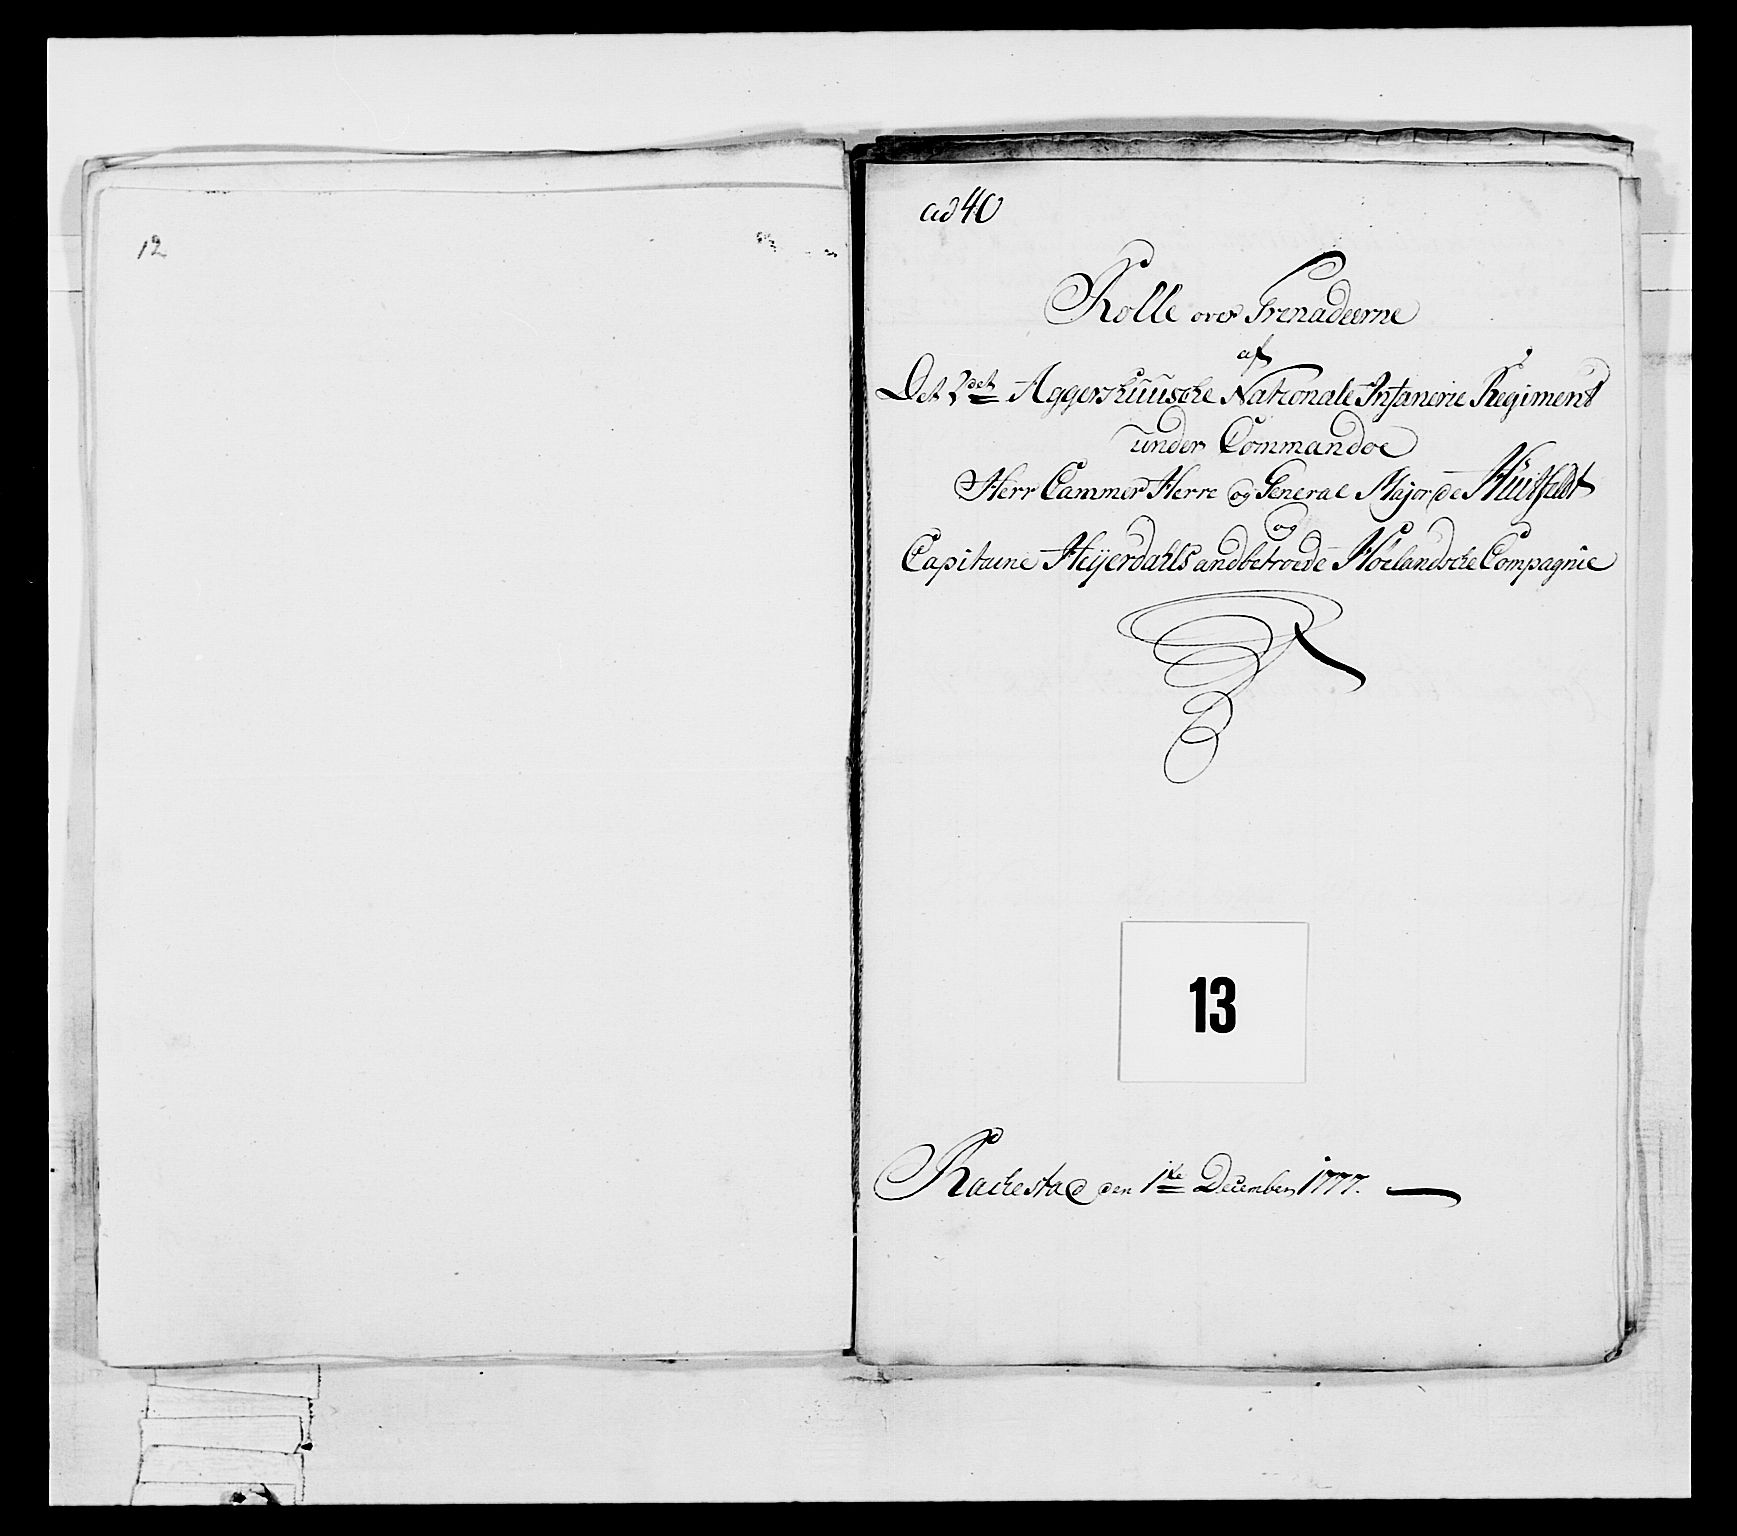 12
ad 40
Rolle over Grenadeerne
af
Det 2det Aggershuusche Nationale Infanerie Regiment
under Commandoe
Herr Cammer Herre og General Major de Hüitfeldt
og
Capitaine Heyerdahls andbetroede Hölandsche Compagnie
13
Rackestad den 1te December 1777.